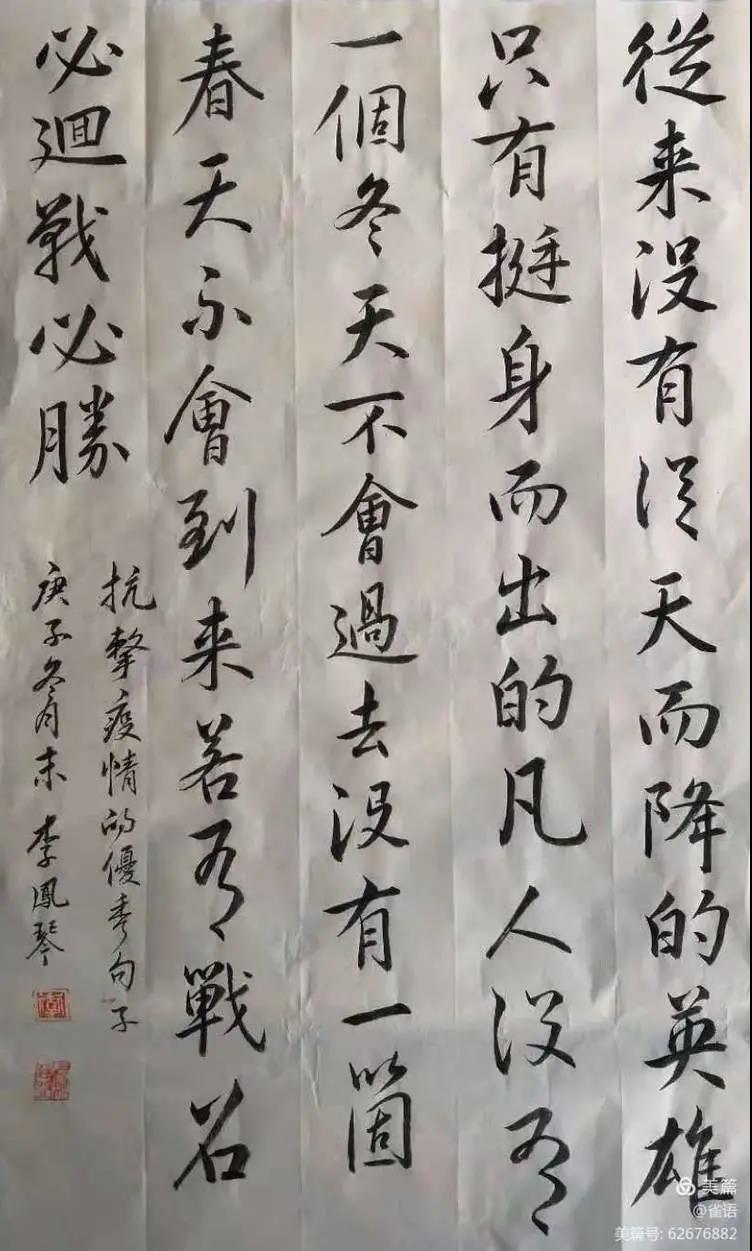 從来没有從天而降的英雄
只有挺身而出的凡人没有
一個冬天不會過去没有一箇
春天不會到来若有戰召
必迴戰必勝
抗擊疫情的優秀句子
庚子冬月末 李鳳琴
美篇
@雀语
美篇号: 62676882